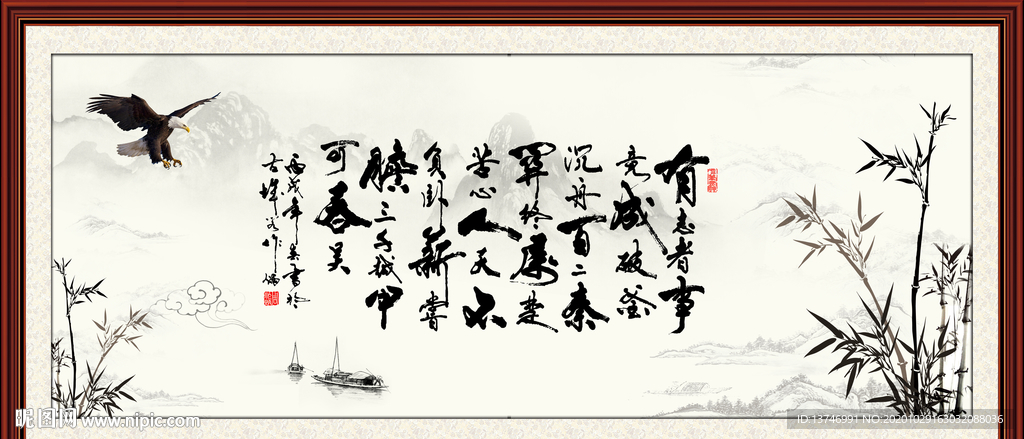 有志者事
竟成破釜
沉舟百二秦
關终屬楚
苦心人天不
負卧薪嘗
膽三千越甲
可吞吴
丙戌年
昵图网 www.nipic.com
ID:13746991 NO:20201029163032088036